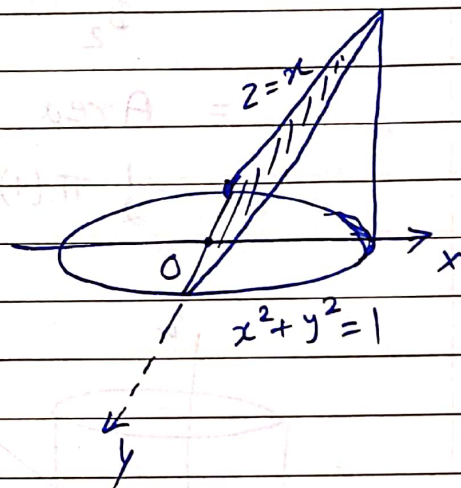 z = x
O
x
x² + y² = 1
y